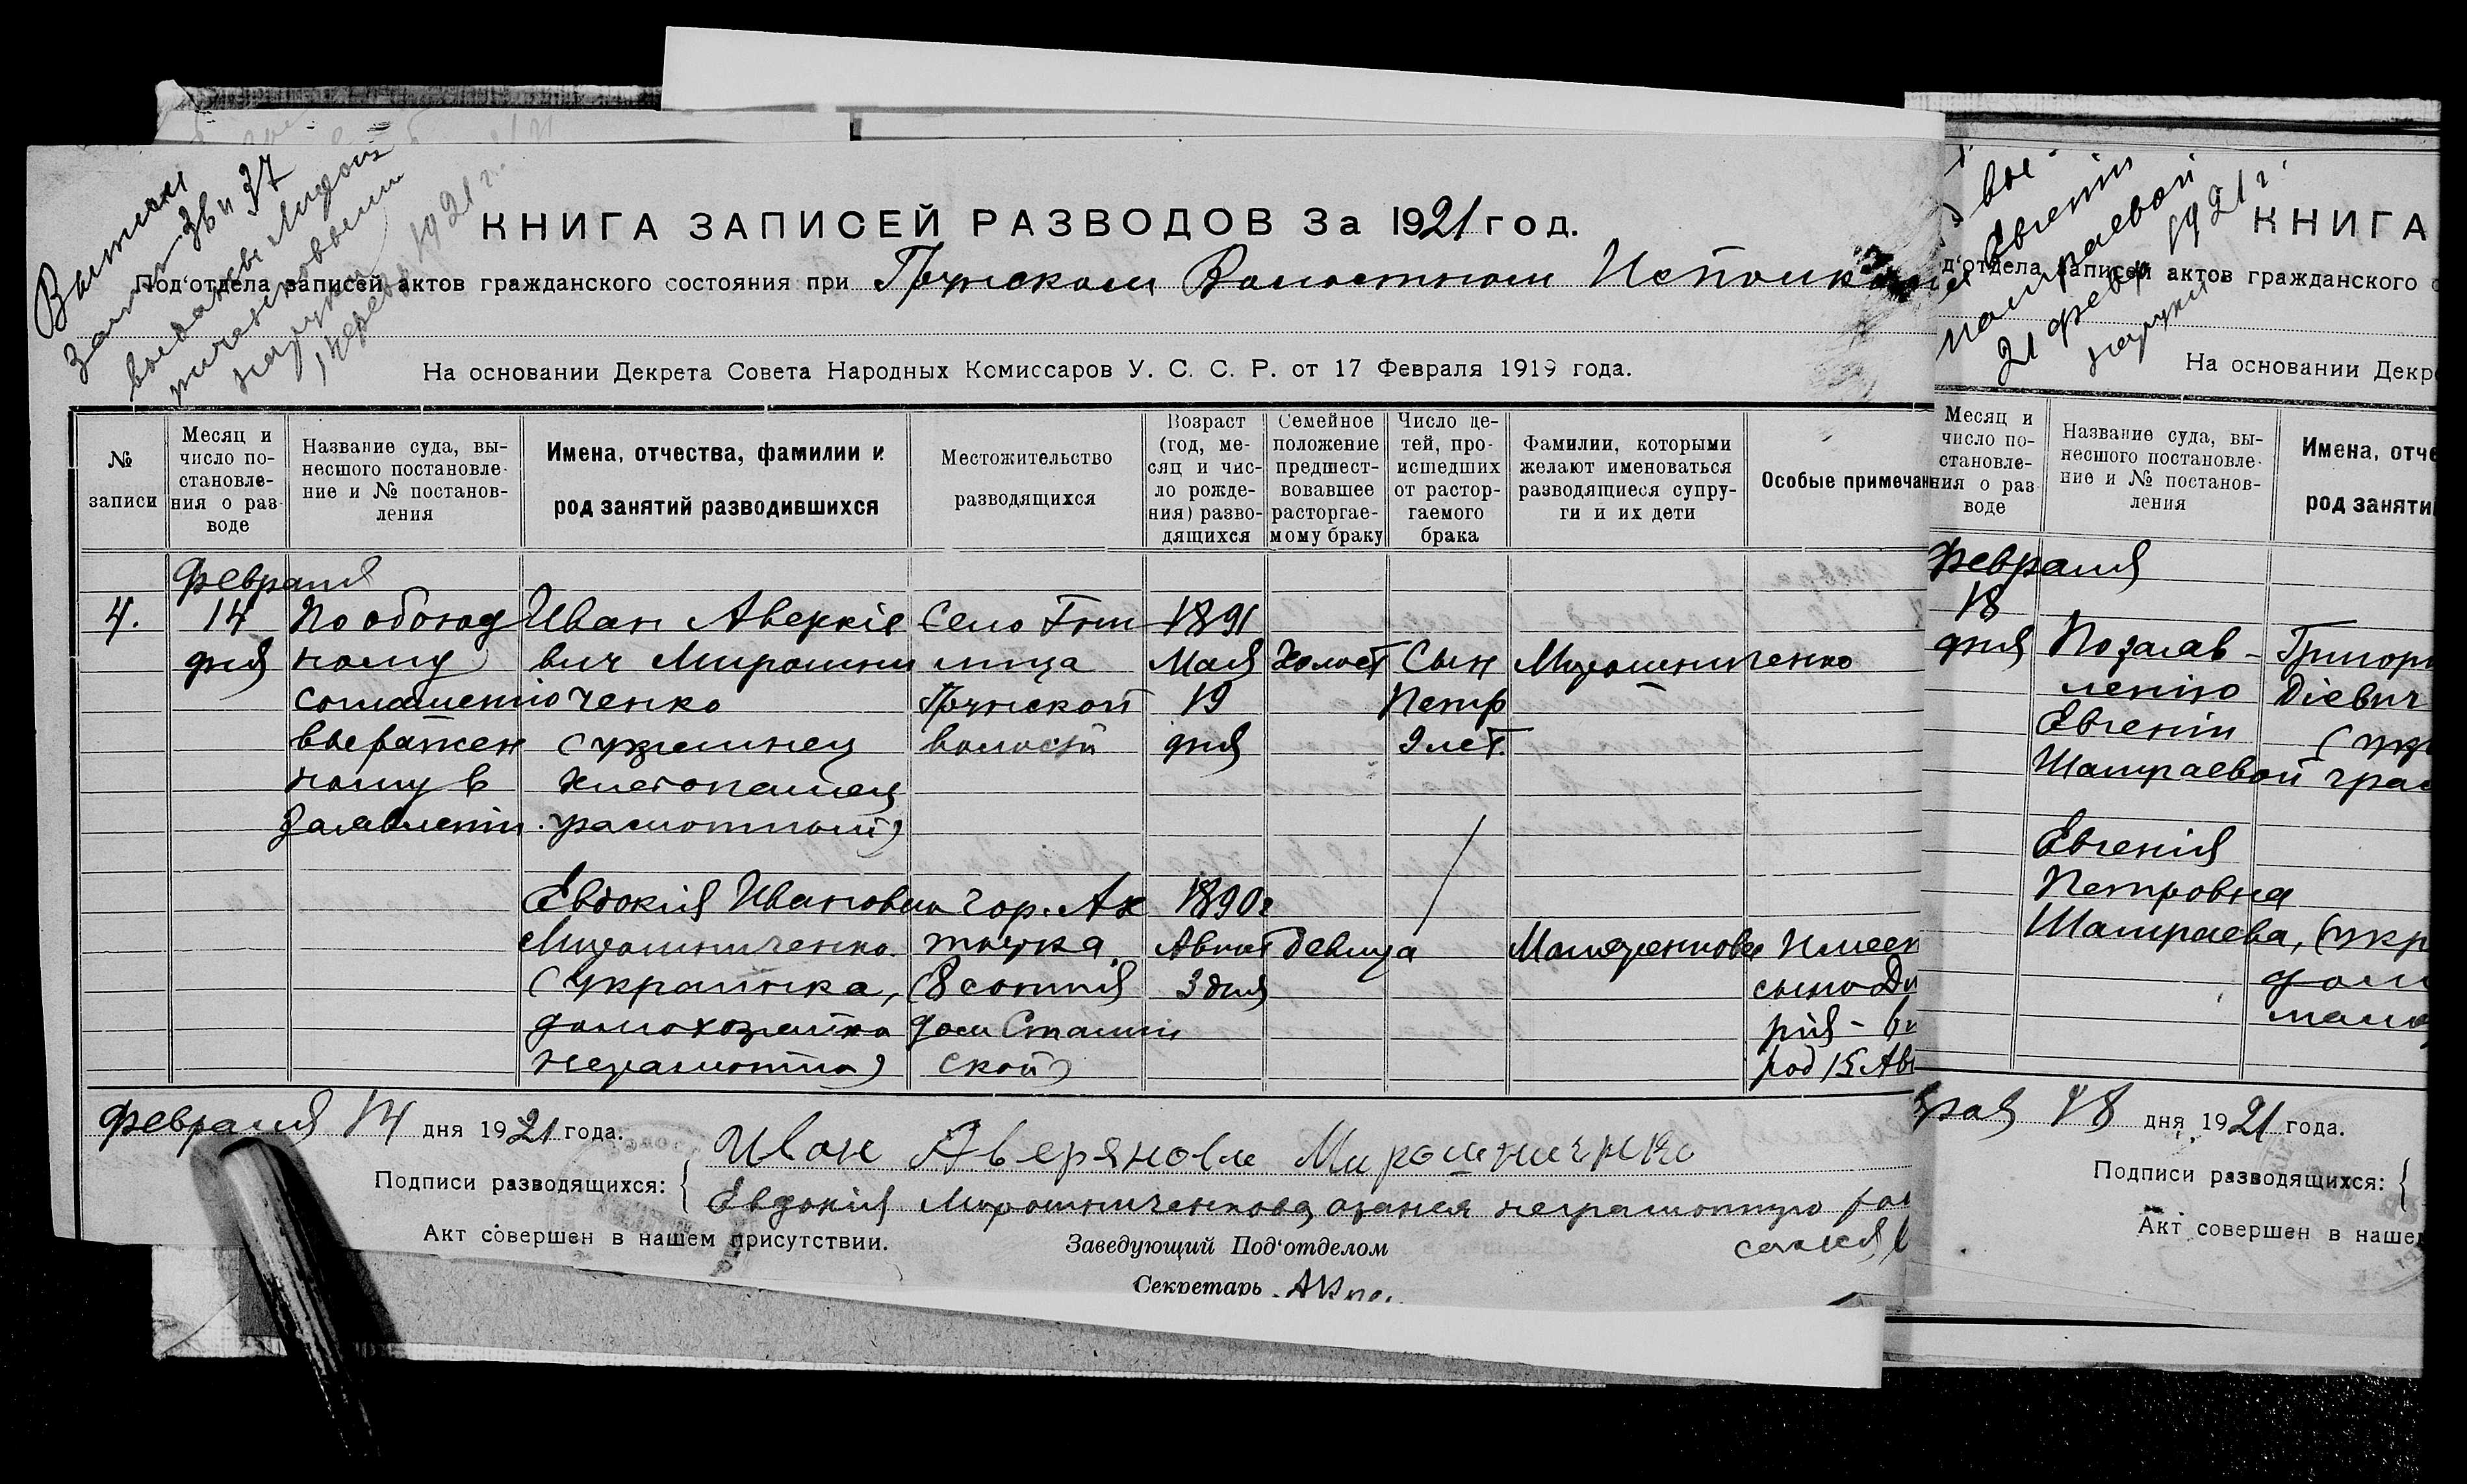 Выписки
за № 36 и 37
выданы
1921 г.
КНИГА ЗАПИСЕЙ РАЗВОДОВ За 1921 год.
Под'отдела записей актов гражданского состояния при Волостном
На основании Декрета Совета Народных Комиссаров У. С. С. Р. от 17 Февраля 1919 года.
№
записи
Месяц и
число по-
становле-
ния о раз-
воде
Название суда, вы-
несшого постановле-
ние и № постанов-
ления
Имена, отчества, фамилии и
род занятий разводившихся
Местожительство
разводящихся
Возраст
(год, ме-
сяц и чис-
ло рожде-
ния) разво-
дящихся
Семейное
положение
предшест-
вовавшее
расторгае-
мому браку
Число де-
тей, про-
исшедших
от растор-
гаемого
брака
Фамилии, которыми
желают именоваться
разводящиеся супру-
ги и их дети
Особые примечан
4.
Февраля
14
дня
По обоюд
ному
соглашению
выражен
ному в
заявлении
Иван Аверкіе
вич Мирошни
ченко
хлебопашец
грамотный)
Село
волости
1891
Мая
19
дня
холост
Сын
Петр
9 лет.
Мирошниченко
Евдокия Ивановна
Мирошниченко.
(украинка,
домохозяйка
неграмотна)
гор. Ах
тырка.
(8 сотня
дом
ской)
1890 г
Август
3 дня
девица
Имеет
сына
род 15 Авг
Февраля 14 дня 1921 года.
Подписи разводящихся:
Иван Аверянов Мирошниченко
Евдокия Мирошниченкова, а за нея неграмотную
Акт совершен в нашем присутствии.
Заведующий Под'отделом
Секретарь
вы
Евгении
21 февр 1921 г.
КНИГА
д'отдела записей актов гражданского с
На основании Декр
Месяц и
число по-
становле-
ния о раз-
воде
Название суда, вы-
несшого постановле-
ние и № постанов-
ления
Имена, отче
род заняти
Февраля
18
дня
По заяв-
лению
Евгении
Шамраевой
Григор
діевич
(укр
Евгения
Петровна
Шамраева, (укр
дом
18 дня 1921 года.
Подписи разводящихся:
Акт совершен в наше